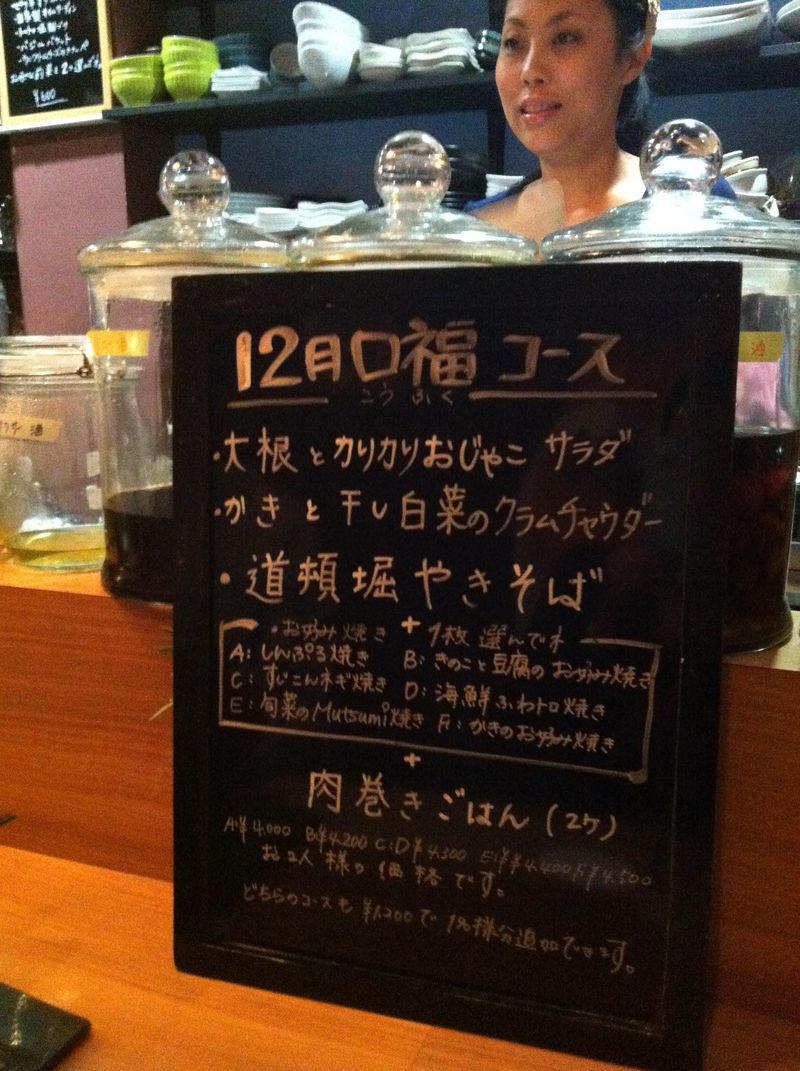 ¥600
酒
酒
12月口福コース
こうふく
・大根とカリカリおじゃこサラダ
・かきと干し白菜のクラムチャウダー
・道頓堀やきそば
+
・お好み焼き 1枚選んでネ
A:しんぷる焼き B:きのこと豆腐のお好み焼き
C:すじこんネギ焼き D:海鮮ふわトロ焼き
E:旬菜のMutsumi焼き F:かきのお好み焼き
+
肉巻きごはん(2ケ)
A:¥4.000 B:¥4.200 C:D¥4.300 E:¥4.400 F¥4.500
お2人様の価格です。
どちらのコースも¥1.200で1名様分追加できます。